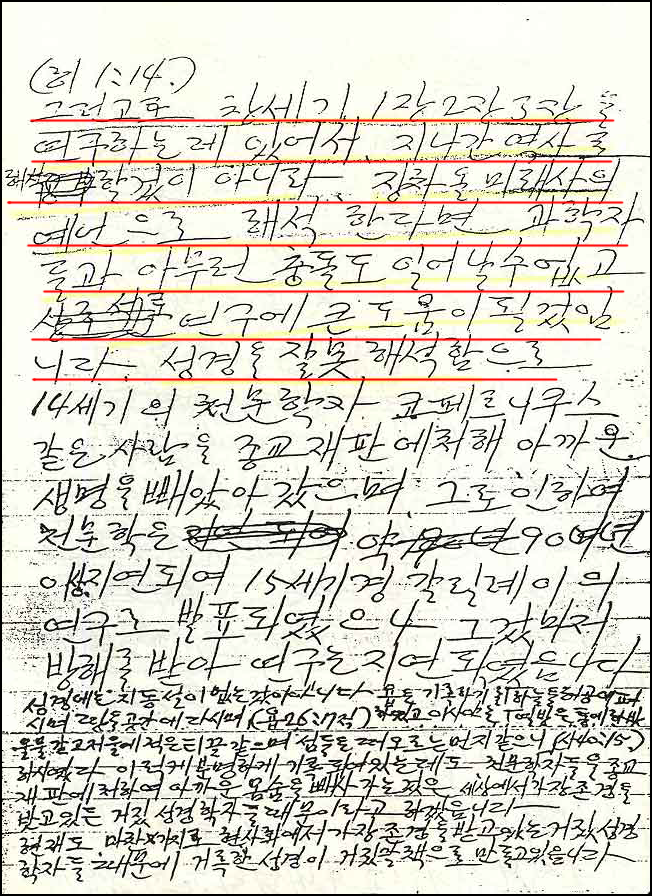 (히 1:14.)
그러고로 창세기 1장 2장 3장을
연구하는데 있어서 지나간 역사를
해석할것이 아니라 장차올 미래사의
예언으로 해석 한다면 과학자
들과 아무런 충돌도 일어날수없고
연구에 큰 도움이 될것임
니다. 성경을 잘못 해석함으로
14세기의 천문학자 코페르니쿠스
같은 사람을 종교재판에처해 아까운
생명을 빼았아 갔으며, 그로 인하여
천문학은 약 90여년
이상지연되여 15세기경 갈릴레이의
연구로 발표되였으나 그것마저
방해를 받아 연구는 지연되였읍니다
성경에는 지동설이 없는것이아닙니다 욥을 기록하기를 하늘을허공에펴
시며 그땅을공간에다시며 (욥26:17절) 하였고 이사야를 열방은통에한방
울물같고저울에적은티끌같으며 섬들은떠오르는먼지같으니 (사40:15.)
하시였다 이렇게 분명하게 기록되여있는데도 천문학자들을종교
재판에처하여 아까운 목숨을빼사가는것은 세상에서가장존경을
받고있든 거짓 성경학자들때문이라고 하겠읍니다
현재도 마찬가지로 현사회에서가장존경을받고있는거짓성경
학자들때문에 거룩한성경이 거짓말책으로 만들고있읍니다